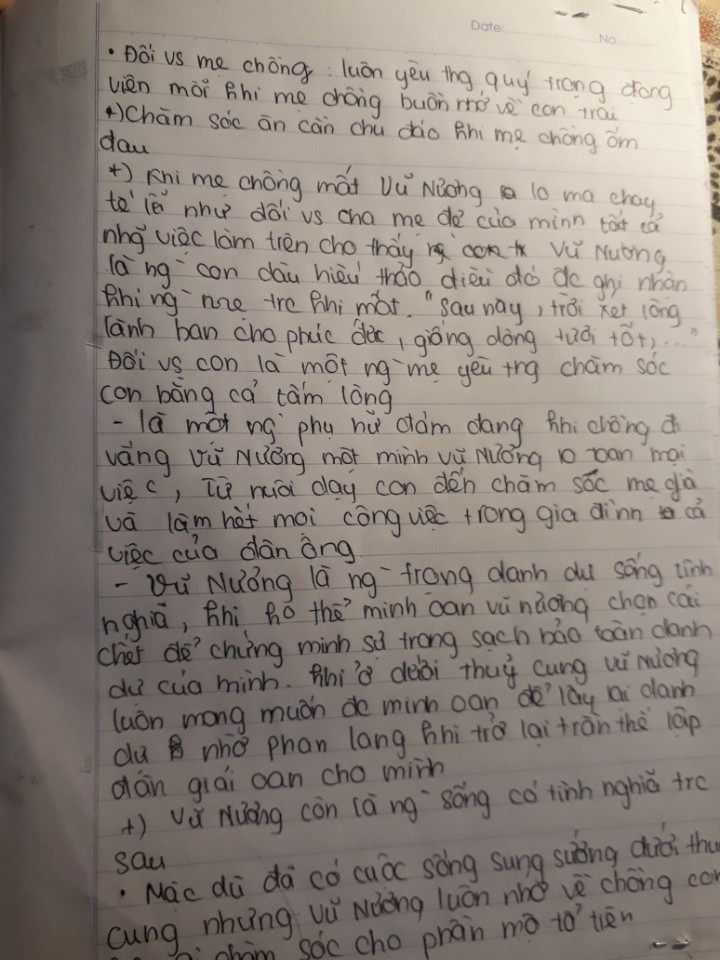 Date:
No
• Đối vs mẹ chồng : luôn yêu thg quý trọng động
viên mỗi khi mẹ chồng buồn nhớ về con trai
+) Chăm sóc ân cần chu đáo khi mẹ chồng ốm
đau
+) Khi mẹ chồng mất Vũ Nương lo ma chay
tế lễ như đối vs cha mẹ đẻ của mình tất cả
nhg việc làm trên cho thấy Vũ Nương
là ng` con dâu hiếu thảo điều đó đc ghi nhận
khi ng` mẹ trc khi mất. "Sau này, trời xét lòng
lành ban cho phúc đức, giống dòng tươi tốt,..."
Đối vs con là một ng` mẹ yêu thg chăm sóc
con bằng cả tấm lòng
- là một ng` phụ nữ đảm đang khi chồng đi
vắng Vũ Nương một mình vũ Nương lo toan mọi
việc, Từ nuôi dạy con đến chăm sóc mẹ già
và làm hết mọi công việc trong gia đình cả
việc của đàn ông
- Vũ Nương là ng` trọng danh dự sống tình
nghĩa, khi ko thể minh oan vũ nương chọn cái
chết để chứng minh sự trong sạch bảo toàn danh
dự của mình. Khi ở dưới thuỷ cung vũ Nương
luôn mong muốn đc minh oan để lấy lại danh
dự nhờ phan lang khi trở lại trần thế lập
đàn giải oan cho mình
+) Vũ Nương còn là ng` sống có tình nghĩa trc
sau
• Mặc dù đã có cuộc sống sung sướng dưới thu
cung nhưng Vũ Nương luôn nhớ về chồng con
chăm sóc cho phần mộ tổ tiên